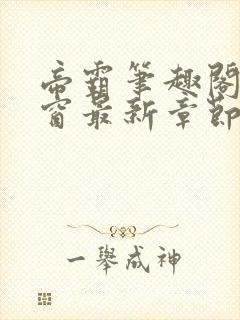 帝霸筆趣閣
窗最新章節
一舉成神